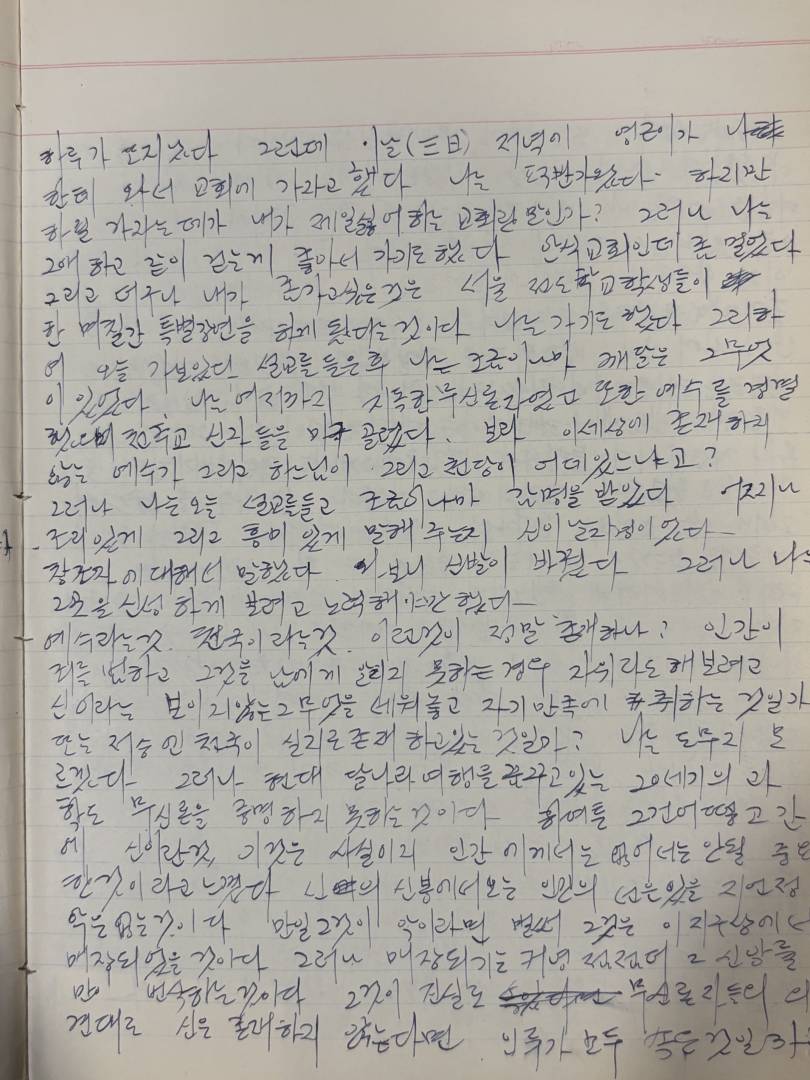 하루가 또 지났다 그런데 이날(三日) 저녁에 영근이가 나
한테 와서 교회에 가라고 했다 나는 무척 반가웠다. 하지만
하필 가라는데가 내가 제일싫어하는 교회란 말인가? 그러나 나는
그애하고 같이 걷는게 좋아서 가기로 했다 안식교회인데 좀 멀었다
그리고 더구나 내가 좀 가고싶은것은 서울 전도학교학생들이
한 며칠간 특별강연을 하게 됬다는것이다 나는 가기로 했다 그리하
여 오늘 가보았다 설교를 들은후 나는 조금이나마 깨달은 그무엇
이 있었다 나는 여지까지 지독한 무신론자였고 또한 예수를 경멸
했으며 천주교 신자들을 골렸다. 보라 이세상에 존재하지
않는 예수가 그리고 하느님이 그리고 천당이 어데있느냐고?
그러나 나는 오늘 설교를듣고 조금이나마 감명을 받았다 어찌나
조리있게 그리고 흥미 있게 말해 주는지 신이날지경이었다
창조자에대해서 말했다 보니 신발이 바뀠다 그러나 나는
그것을 신성하게 보려고 노력해야만 했다
예수라는것. 천국이라는것. 이런것이 정말 존재하나? 인간이
죄를 범하고 그것을 남에게 알리지 못하는 경우 자위라도해보려고
신이라는 보이지않는 그무엇을 세워놓고 자기만족에 취하는 것일가
또는 저승인 천국이 실지로존재하고있는 것일가? 나는 도무지 모
르겠다 그러나 현대 달나라여행을 꿈꾸고있는 20세기의 과
학도 무신론을 증명하지 못하는것이다 하여튼 그건어떻고 간
에 신이란것, 이것은 사실이지 인간에게서는 없어서는 안될 중요
한것이라고느꼈다 신의 신봉에서오는 인간의 선은있을 지언정
악은 없는것이다 만일그것이 악이라면 벌써 그것은 이지구상에서
매장되었을것이다 그러나 매장되기는 커녕 점점더 그 신앙률
만 번식하는것이다 그것이 진실로 무신론자들의 의
견대로 신은 존재하지 않는다면 인류가 모두 속는것일